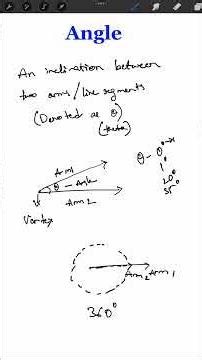 Angle
An inclination between
two arms/line segments
(Denoted as θ)
(theta)
Arm1
θ - Angle
Arm2
Vertex
θ -
20°
35°
Arm2 Arm1
360°